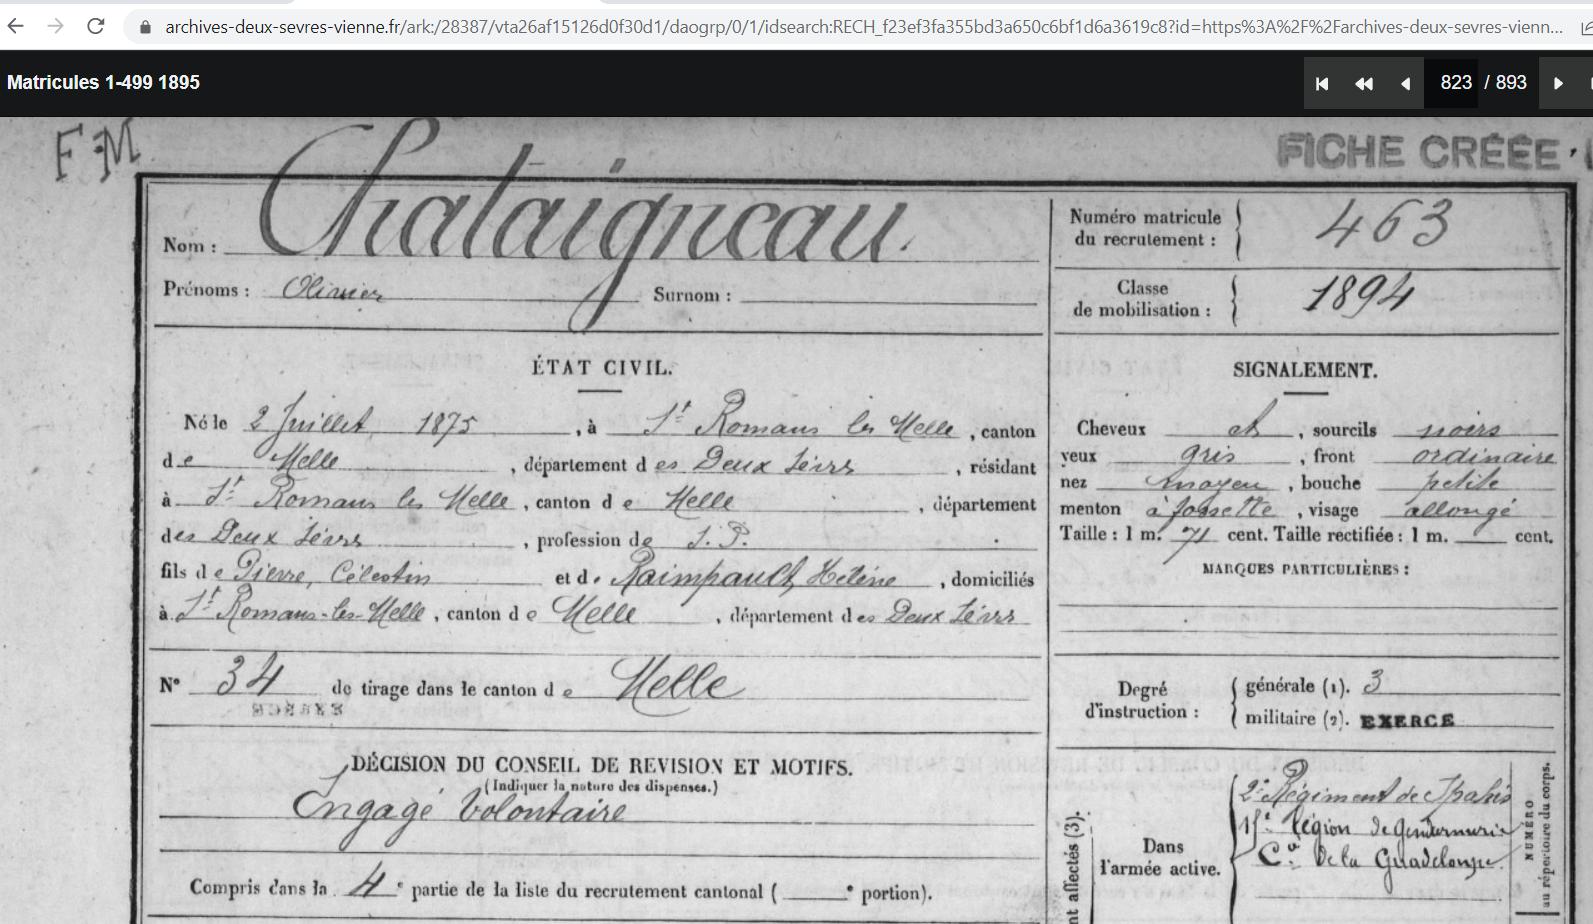 archives-deux-sevres-vienne.fr/ark:/28387/vta26af15126d0f30d1/daogrp/0/1/idsearch:RECH_f23ef3fa355bd3a650c6bf1d6a3619c8?id=https%3A%2F%2Farchives-deux-sevres-vienn...
Matricules 1-499 1895
823 / 893
F M
FICHE CRÉÉE
Nom : Chataigneau.
Prénoms : Olivier Surnom :
Numéro matricule du recrutement : 463
Classe de mobilisation : 1894
ÉTAT CIVIL.
Né le 2 Juillet 1875, à St Romans les Melle, canton
de Melle, département des Deux Sèvres, résidant
à St Romans les Melle, canton de Melle, département
des Deux Sèvres, profession de S. P.
fils de Pierre, Célestin et de Raimpault, Hélène, domiciliés
à St Romans-les-Melle, canton de Melle, département des Deux Sèvres
N° 34 de tirage dans le canton de Melle
DÉCISION DU CONSEIL DE REVISION ET MOTIFS.
(Indiquer la nature des dispenses.)
Engagé Volontaire
Compris dans la 4e partie de la liste du recrutement cantonal ( e portion).
SIGNALEMENT.
Cheveux et, sourcils noirs
yeux gris, front ordinaire
nez moyen, bouche petite
menton à fossette, visage allongé
Taille : 1 m. 71 cent. Taille rectifiée : 1 m. cent.
MARQUES PARTICULIÈRES :
Degré d'instruction :
générale (1). 3
militaire (2). EXERCÉ
nt affectés (3).
Dans l'armée active.
2e Régiment de Spahis
15e Légion de gendarmerie
Cie de la Guadeloupe
NUMÉRO
au répertoire du corps.